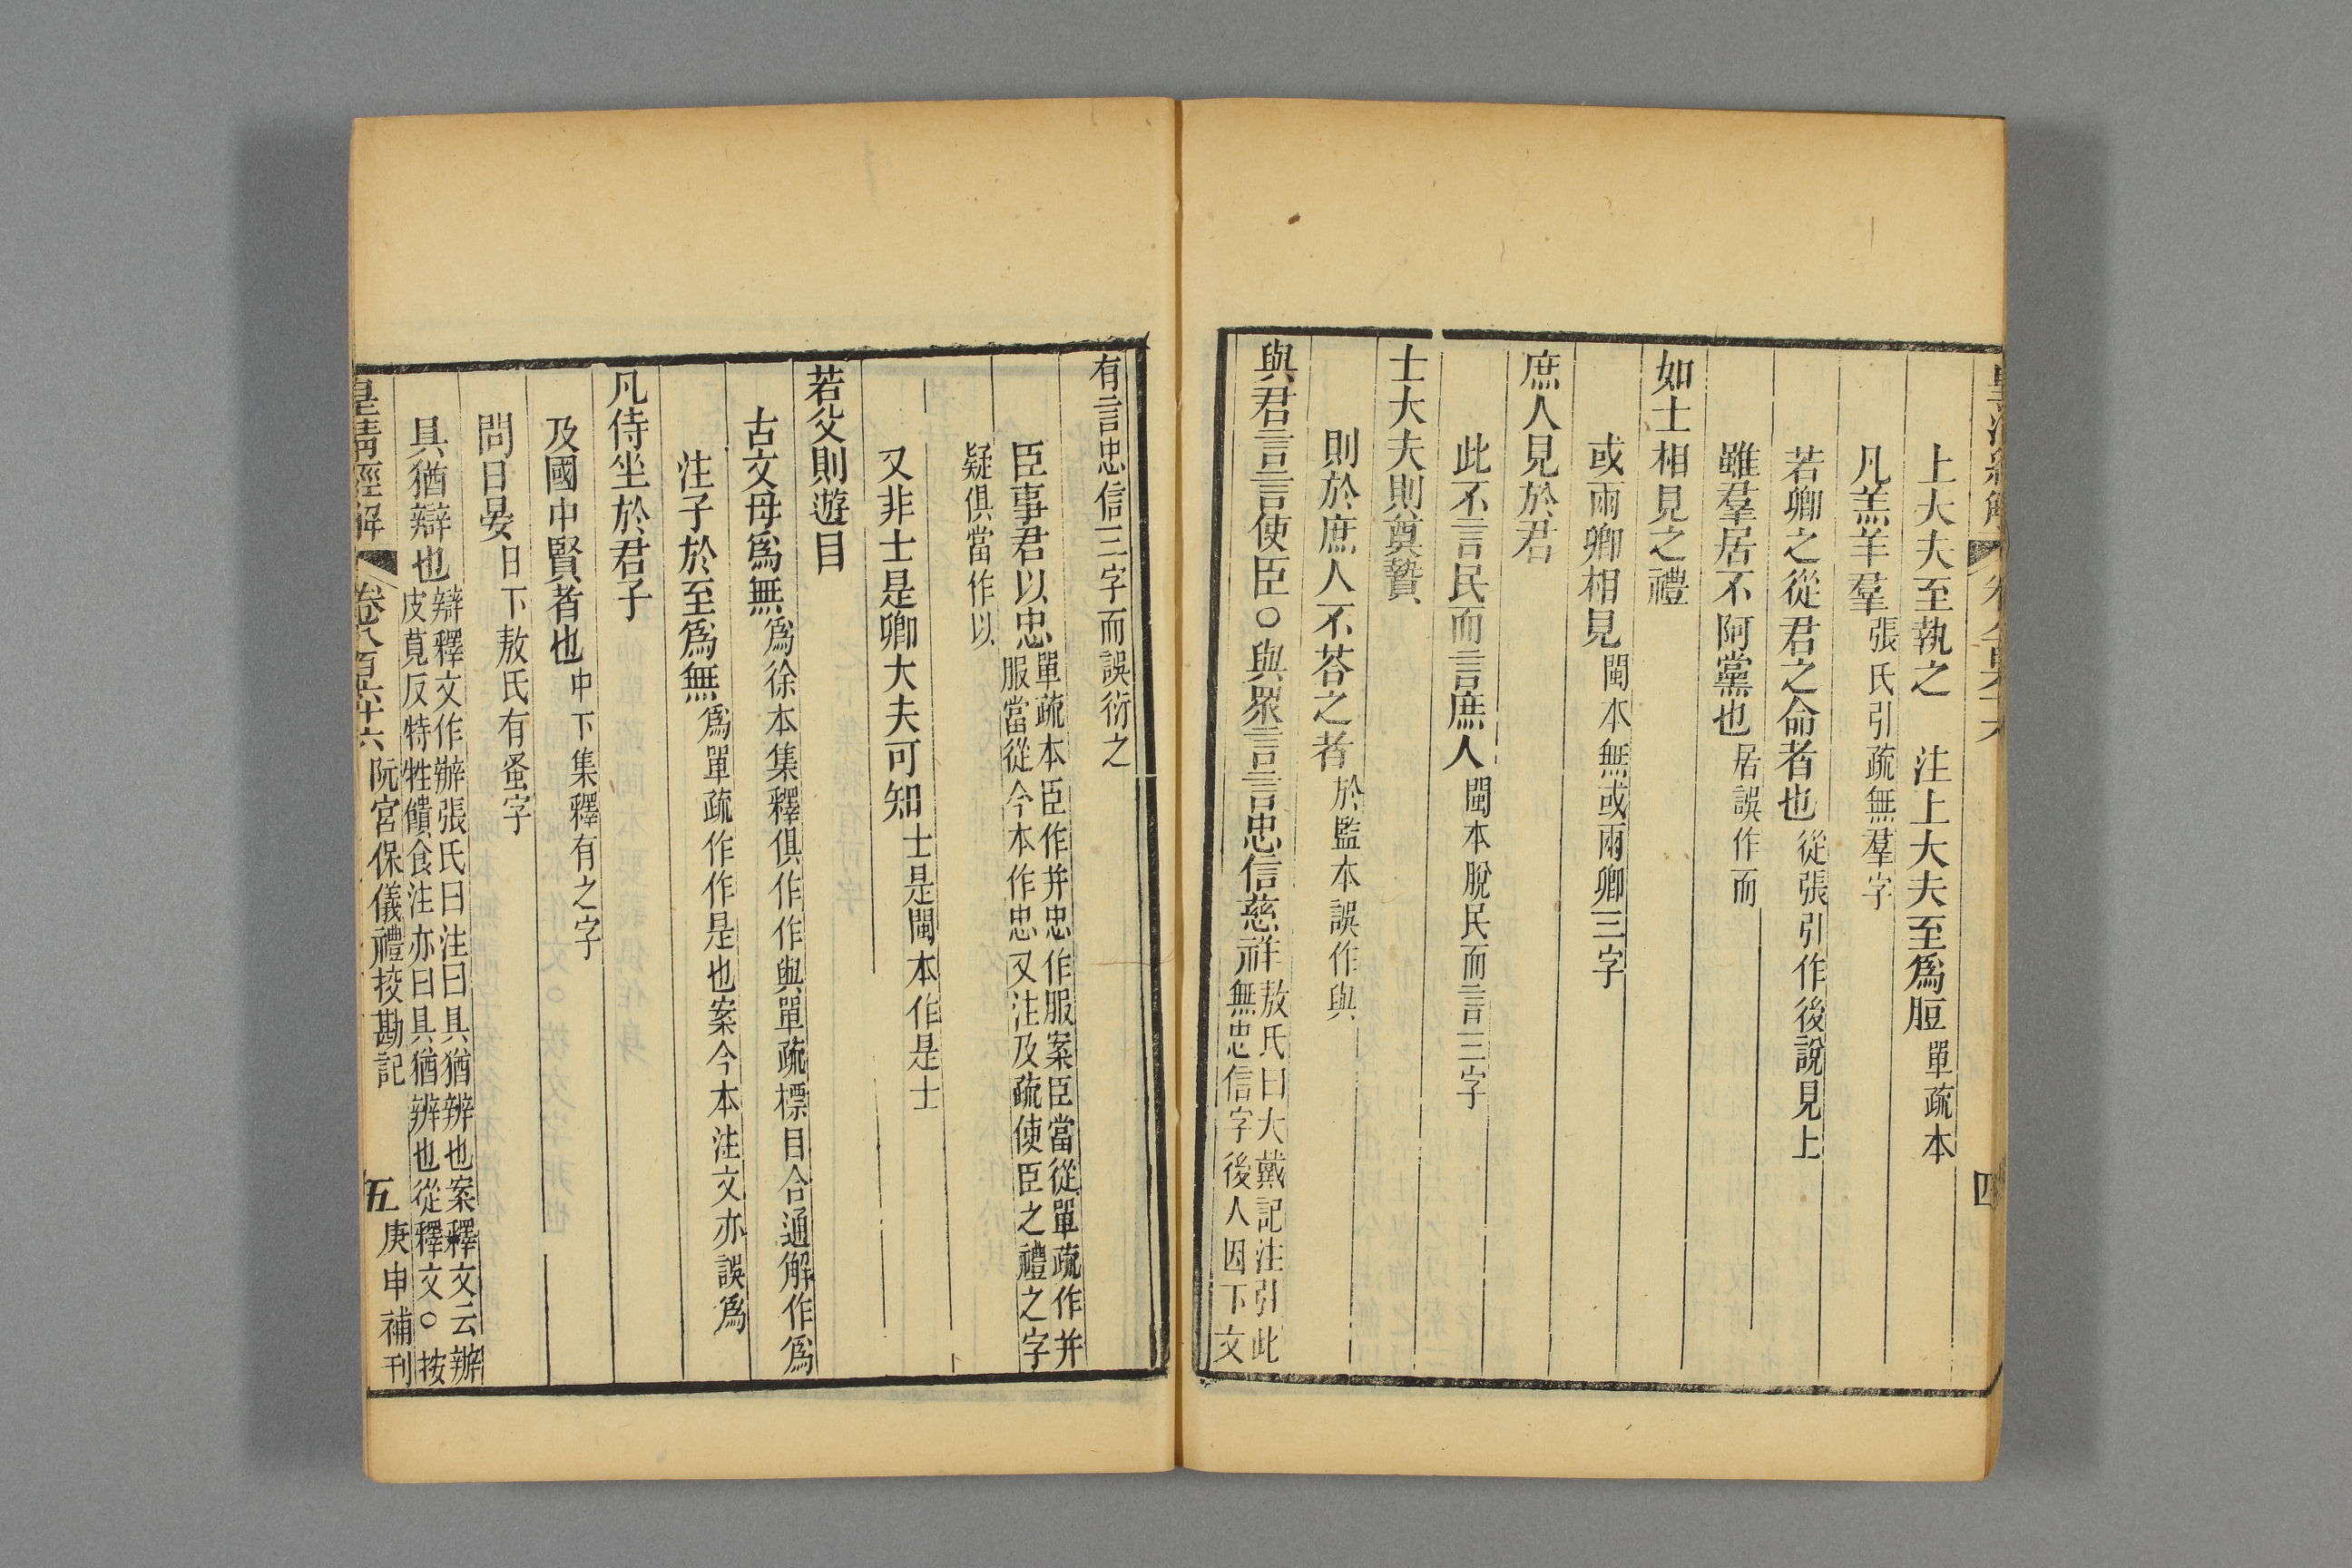 上大夫至執之　注上大夫至爲脰單疏本
凡羔羊羣張氏引疏無羣字
若卿之從君之命者也從張引作後說見上
雖羣居不阿黨也居誤作而
如士相見之禮
或兩卿相見閩本無或兩卿三字
庶人見於君
此不言民而言庶人閩本脫民而言三字
士大夫則奠贄
則於庶人不荅之者於監本誤作與
與君言言使臣○與眾言言忠信慈祥敖氏曰大戴記注引此
無忠信字後人因下文
有言忠信三字而誤衍之
臣事君以忠單疏本臣作并忠作服案臣當從單疏作并
服當從今本作忠又注及疏使臣之禮之字
疑俱當作以
又非士是卿大夫可知士是閩本作是士
若父則遊目
古文毋爲無爲徐本集釋俱作作與單疏標目合通解作爲
注子於至爲無爲單疏作作是也案今本注文亦誤爲
凡侍坐於君子
及國中賢者也中下集釋有之字
問日晏日下敖氏有蚤字
具猶辯也辯釋文作辦張氏曰注曰具猶辨也案釋文云辦
皮莧反特牲饋食注亦曰具猶辨也從釋文○按
皇清經解　卷八百六十六　阮宮保儀禮挍勘記　五　庚申補刊